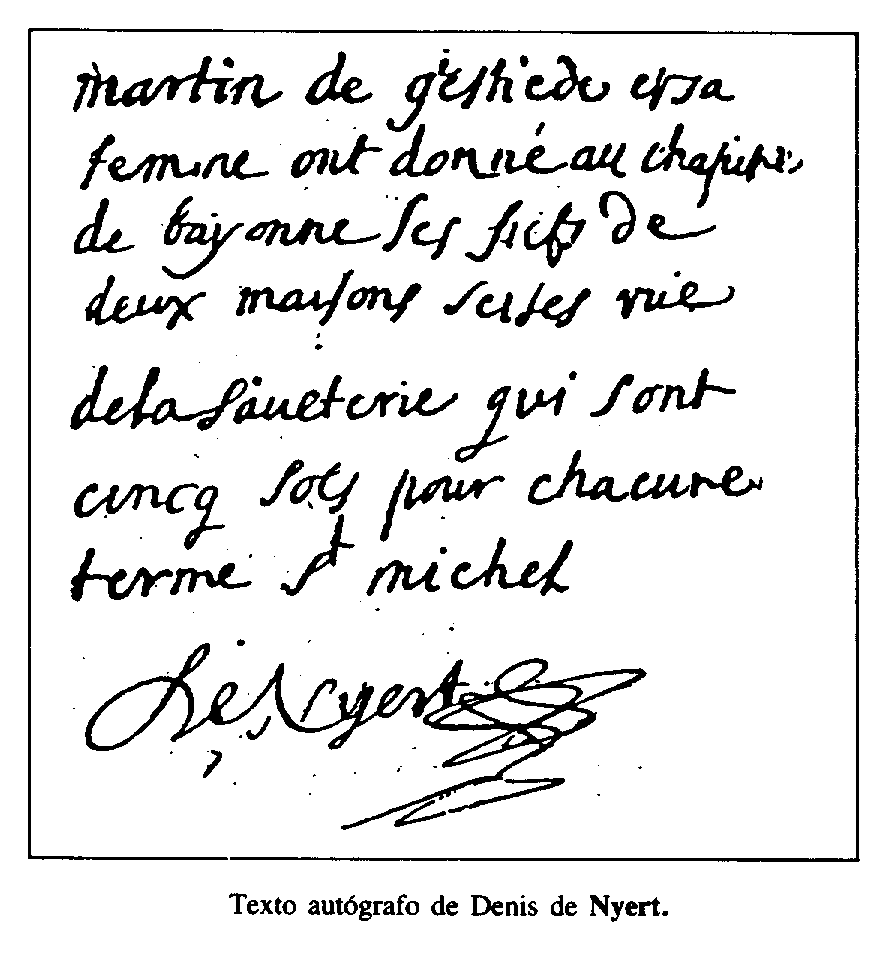 martin de gestiede et sa
femme ont donné au chapitre
de bayonne les fiefs de
deux maisons seises rüe
de la faueterie qui sont
cincq sols pour chacune
terme St michel
De Nyert
Texto autógrafo de Denis de Nyert.